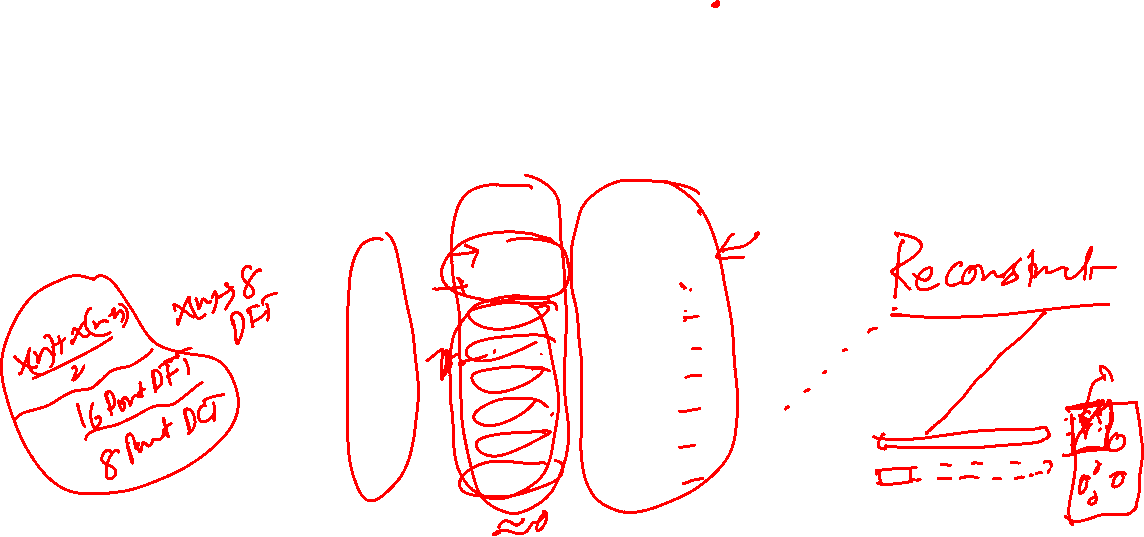 x(n)+x(n-1)
2
16 Point DFT
8 Point DCT
x(n)→8
DFT
≈0
Reconstruct